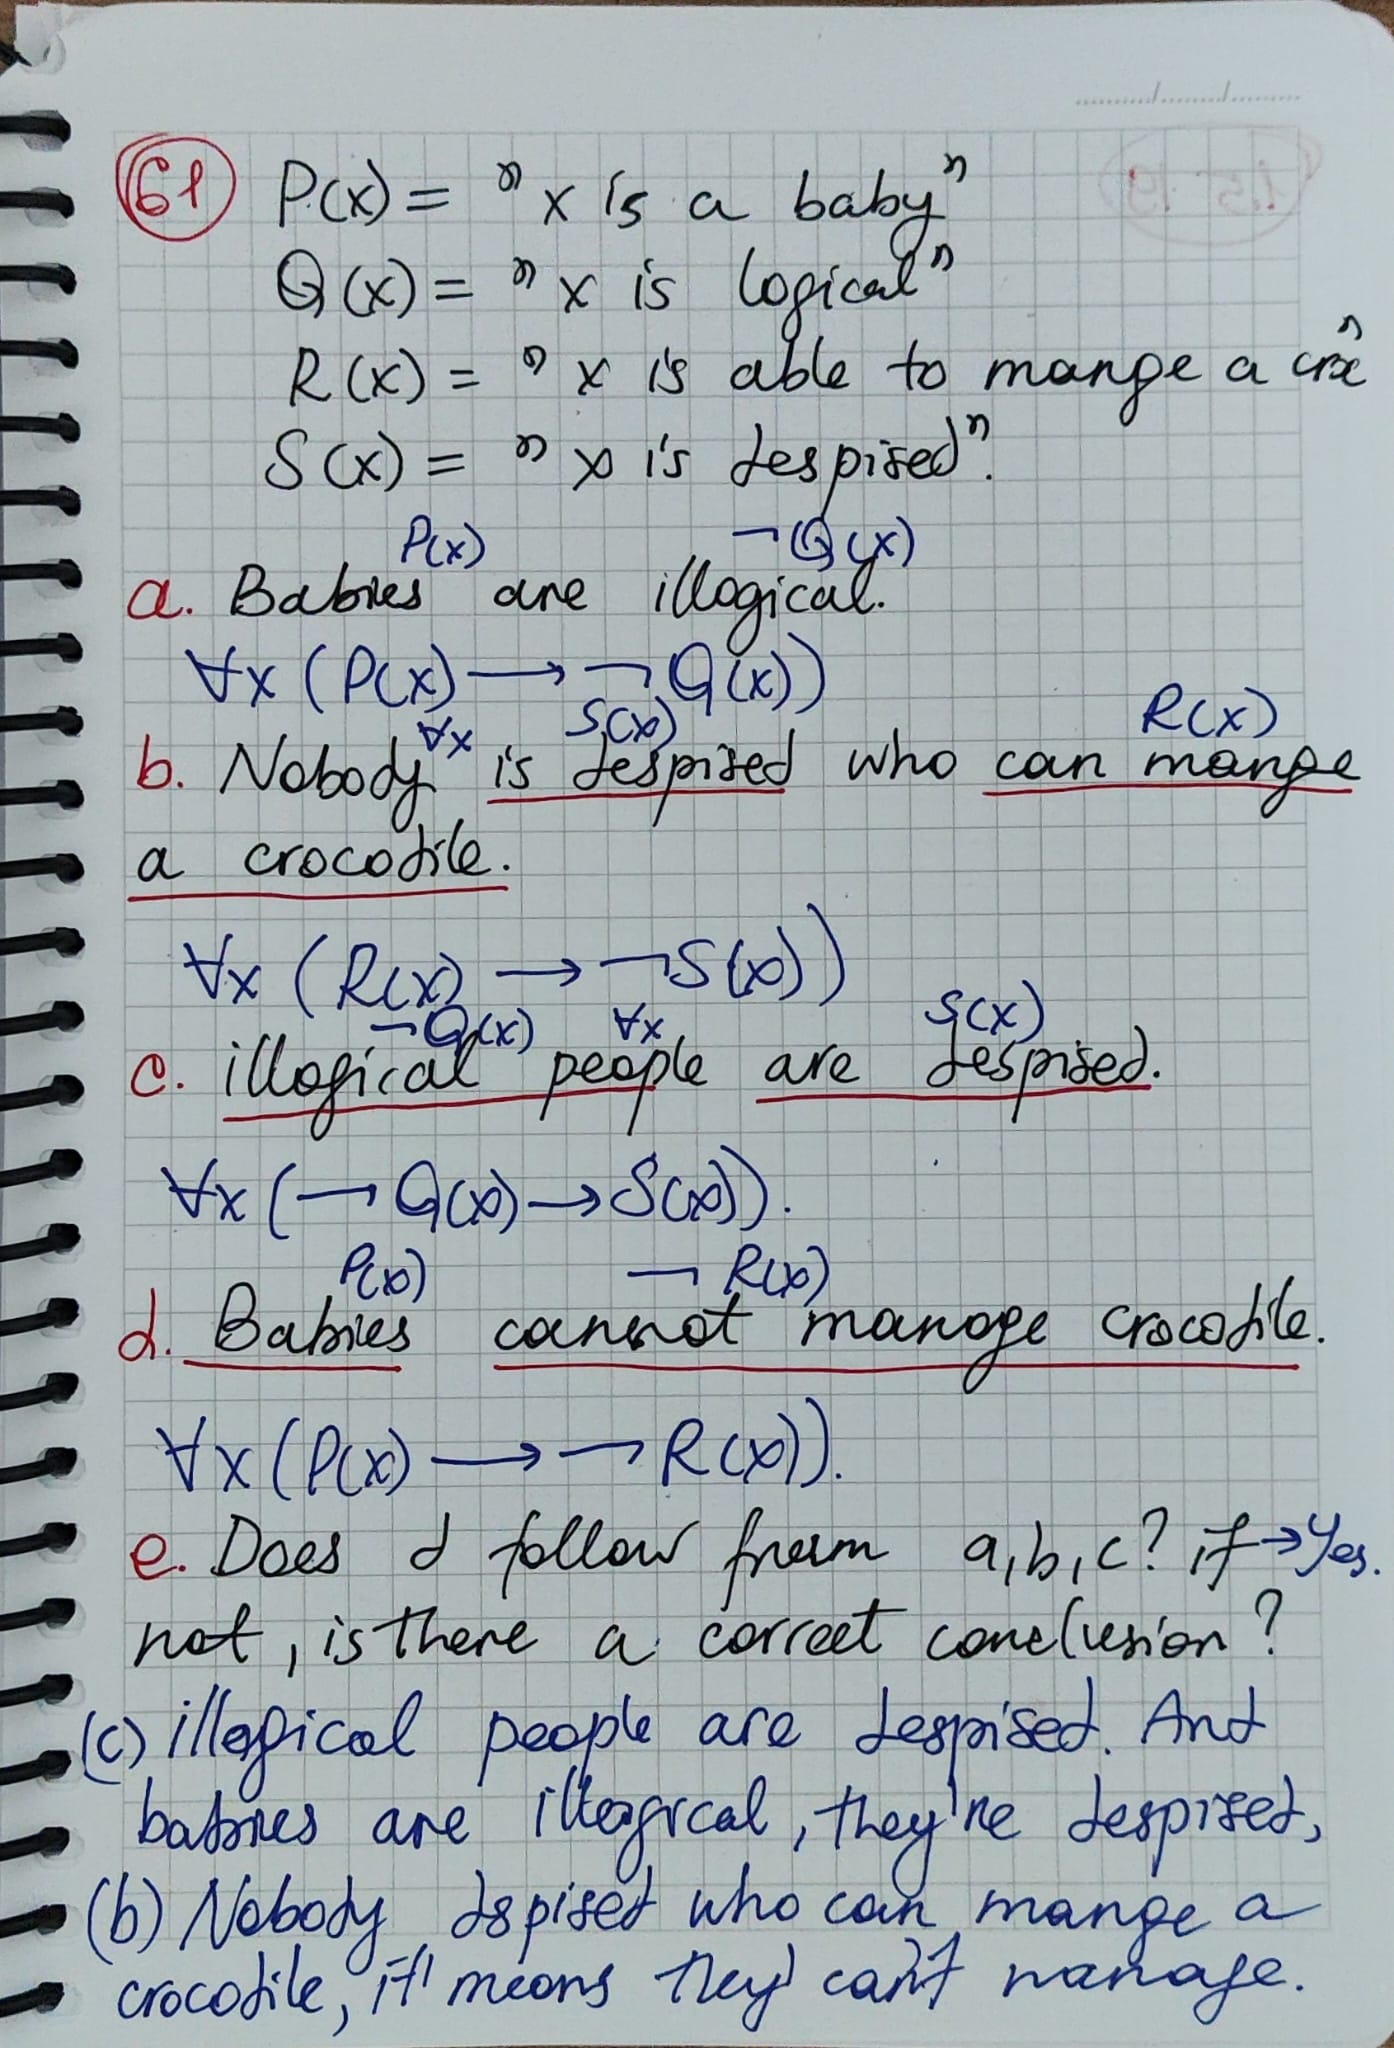 61 P(x) = "x is a baby"
Q(x) = "x is logical"
R(x) = "x is able to mange a
S(x) = "x is despised".
P(x) ¬Q(x)
a. Babies are illogical.
∀x (P(x) → ¬Q(x))
∀x S(x) R(x)
b. Nobody is despised who can mange
a crocodile.
∀x (R(x) → ¬S(x))
¬Q(x) ∀x S(x)
c. illogical people are despised.
∀x (¬Q(x) → S(x)).
P(x) ¬R(x)
d. Babies cannot manage crocodile.
∀x (P(x) → ¬R(x)).
e. Does d follow from a, b, c? if → Yes.
not, is there a correct conclusion?
(c) illogical people are despised. And
babies are illogical, they're despised,
(b) Nobody dspised who can mange a
crocodile, it means they can't manage.